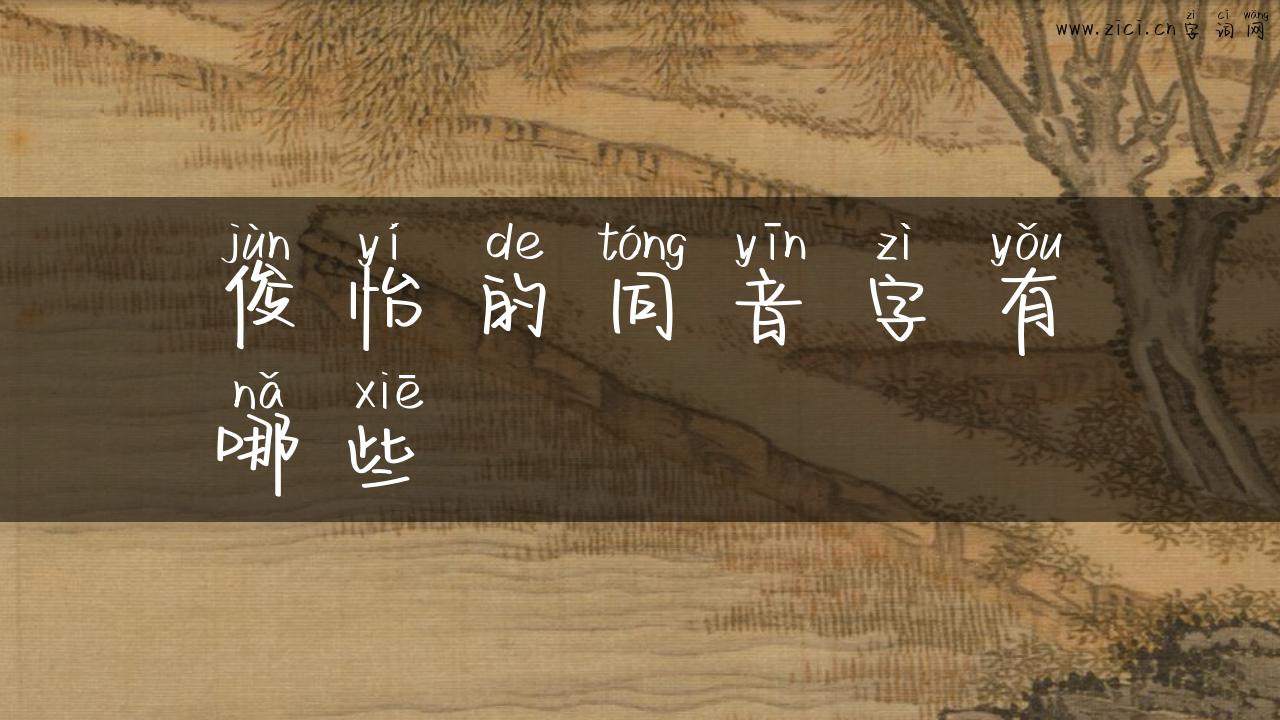 zì cí wǎng
www.zici.cn 字 词 网
jùn yí de tóng yīn zì yǒu
俊 怡 的 同 音 字 有
nǎ xiē
哪 些